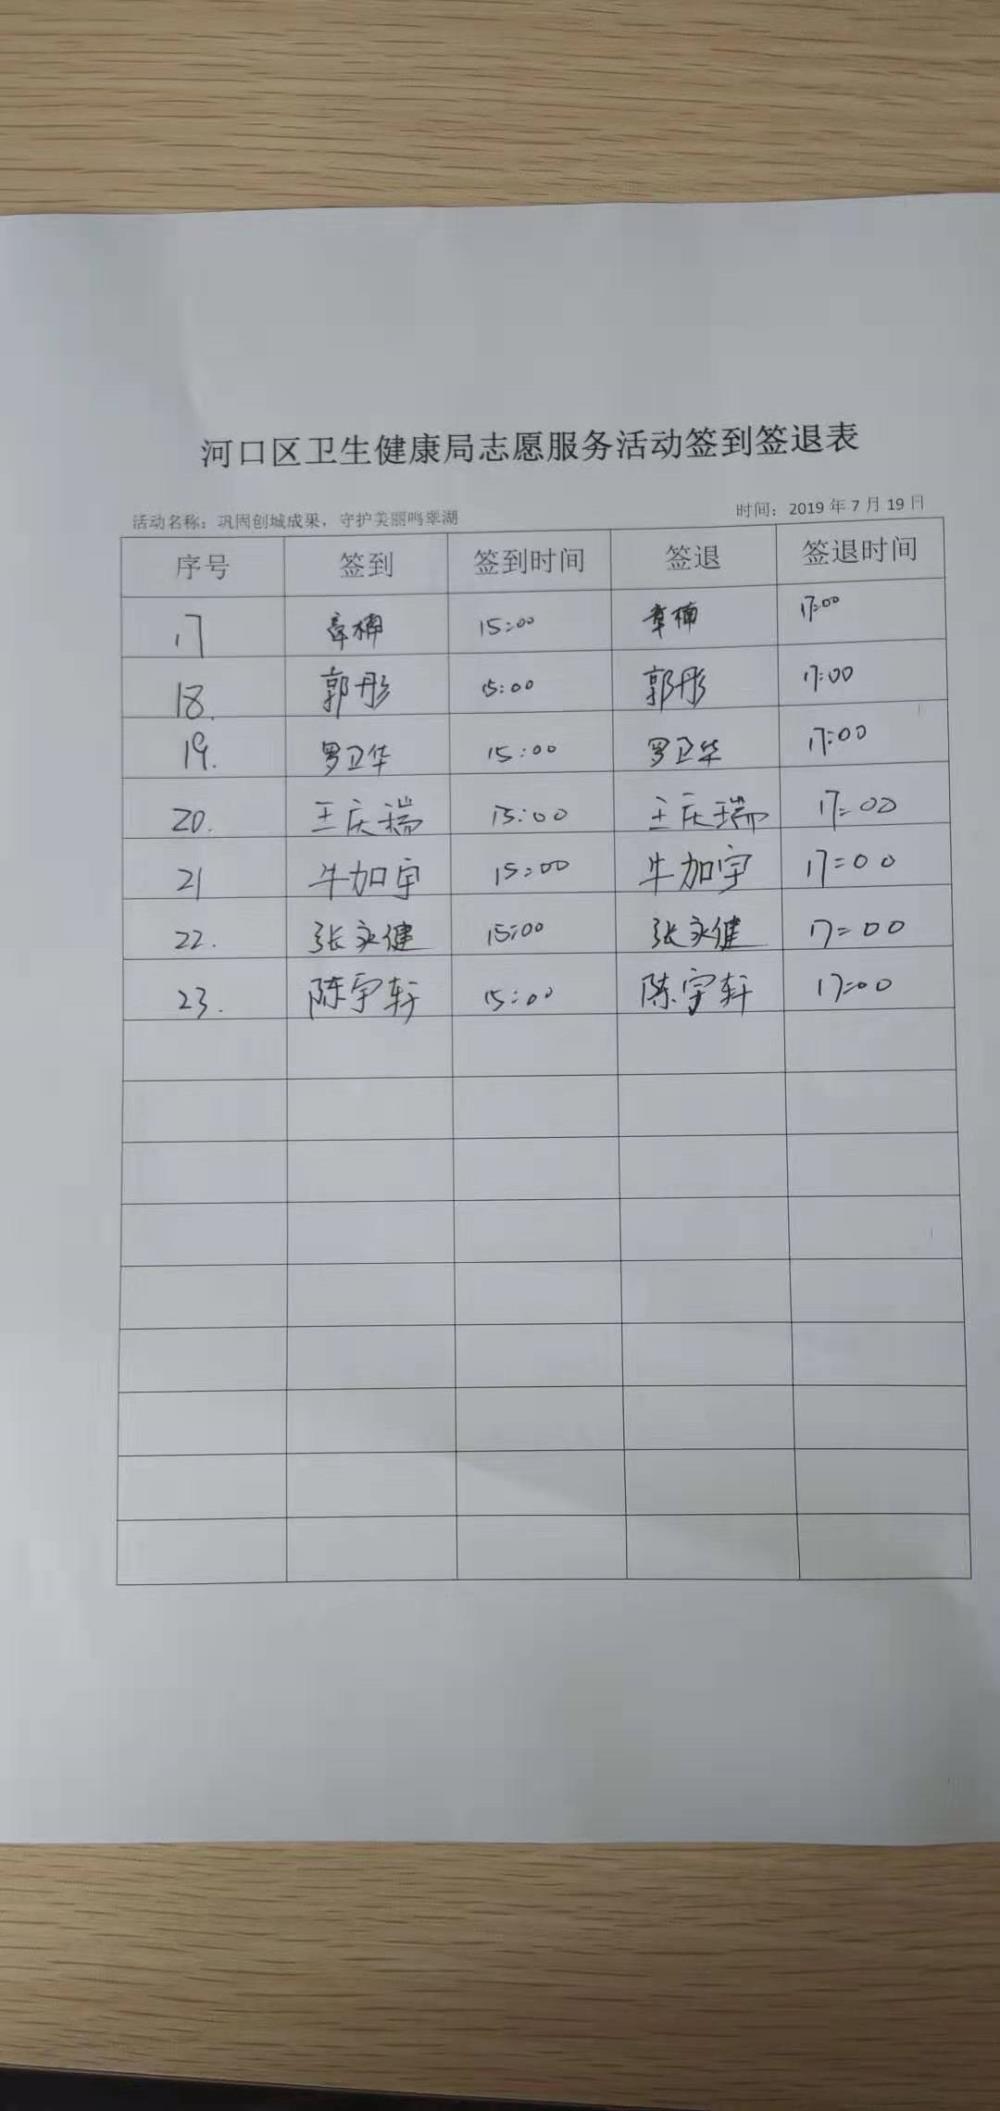 河口区卫生健康局志愿服务活动签到签退表
活动名称：巩固创城成果，守护美丽鸣翠湖 时间：2019年7月19日
序号 签到 签到时间 签退 签退时间
17 章楠 15:00 章楠 17:00
18. 郭彤 15:00 郭彤 17:00
19. 罗卫华 15:00 罗卫华 17:00
20. 王庆瑞 15:00 王庆瑞 17:00
21 牛加宇 15:00 牛加宇 17:00
22. 张永健 15:00 张永健 17:00
23. 陈宇轩 15:00 陈宇轩 17:00